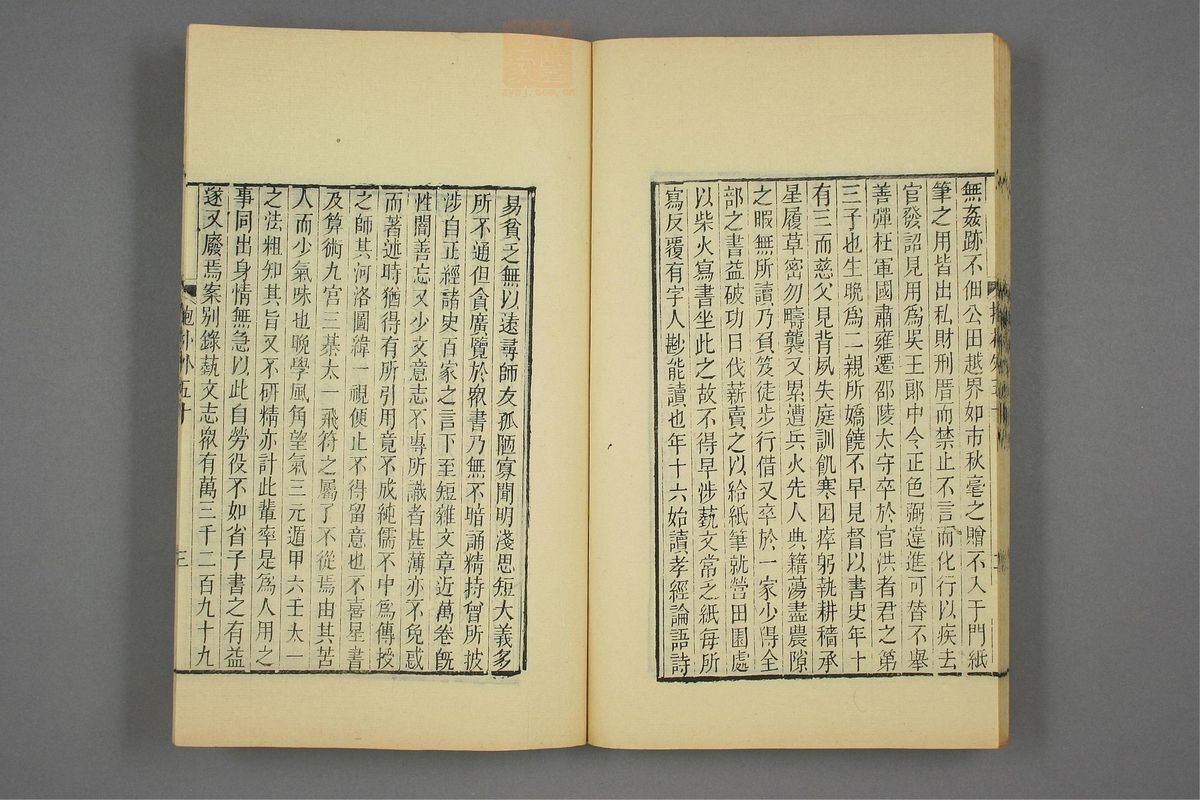 無姦跡不佃公田越界如市秋毫之贈不入于門紙
筆之用皆出私財刑厝而禁止不言而化行以疾去
官發詔見用爲吳王郎中令正色弼違進可替不舉
善彈枉軍國肅雍遷邵陵太守卒於官洪者君之第
三子也生晚爲二親所嬌饒不早見督以書史年十
有三而慈父見背夙失庭訓飢寒困瘁躬執耕穡承
星履草密勿疇襲又累遭兵火先人典籍蕩盡農隙
之暇無所讀乃負笈徒步行借又卒於一家少得全
部之書益破功日伐薪賣之以給紙筆就營田園處
以柴火寫書坐此之故不得早涉藝文常乏紙每所
寫反覆有字人尠能讀也年十六始讀孝經論語詩
易貧乏無以遠尋師友孤陋寡聞明淺思短大義多
所不通但貪廣覽於衆書乃無不暗誦精持曾所披
涉自正經諸史百家之言下至短雜文章近萬卷旣
性闇善忘又少文意志不專所識者甚薄亦不免惑
而著述時猶得有所引用竟不成純儒不中爲傳授
之師其河洛圖緯一視便止不得留意也不喜星書
及算術九宮三棊太一飛符之屬了不從焉由其苦
人而少氣味也晚學風角望氣三元遁甲六壬太一
之法粗知其旨又不硏精亦計此輩率是爲人用之
事同出身情無急以此自勞役不如省子書之有益
遂又廢焉案別錄藝文志衆有萬三千二百九十九
抱朴外五十
三